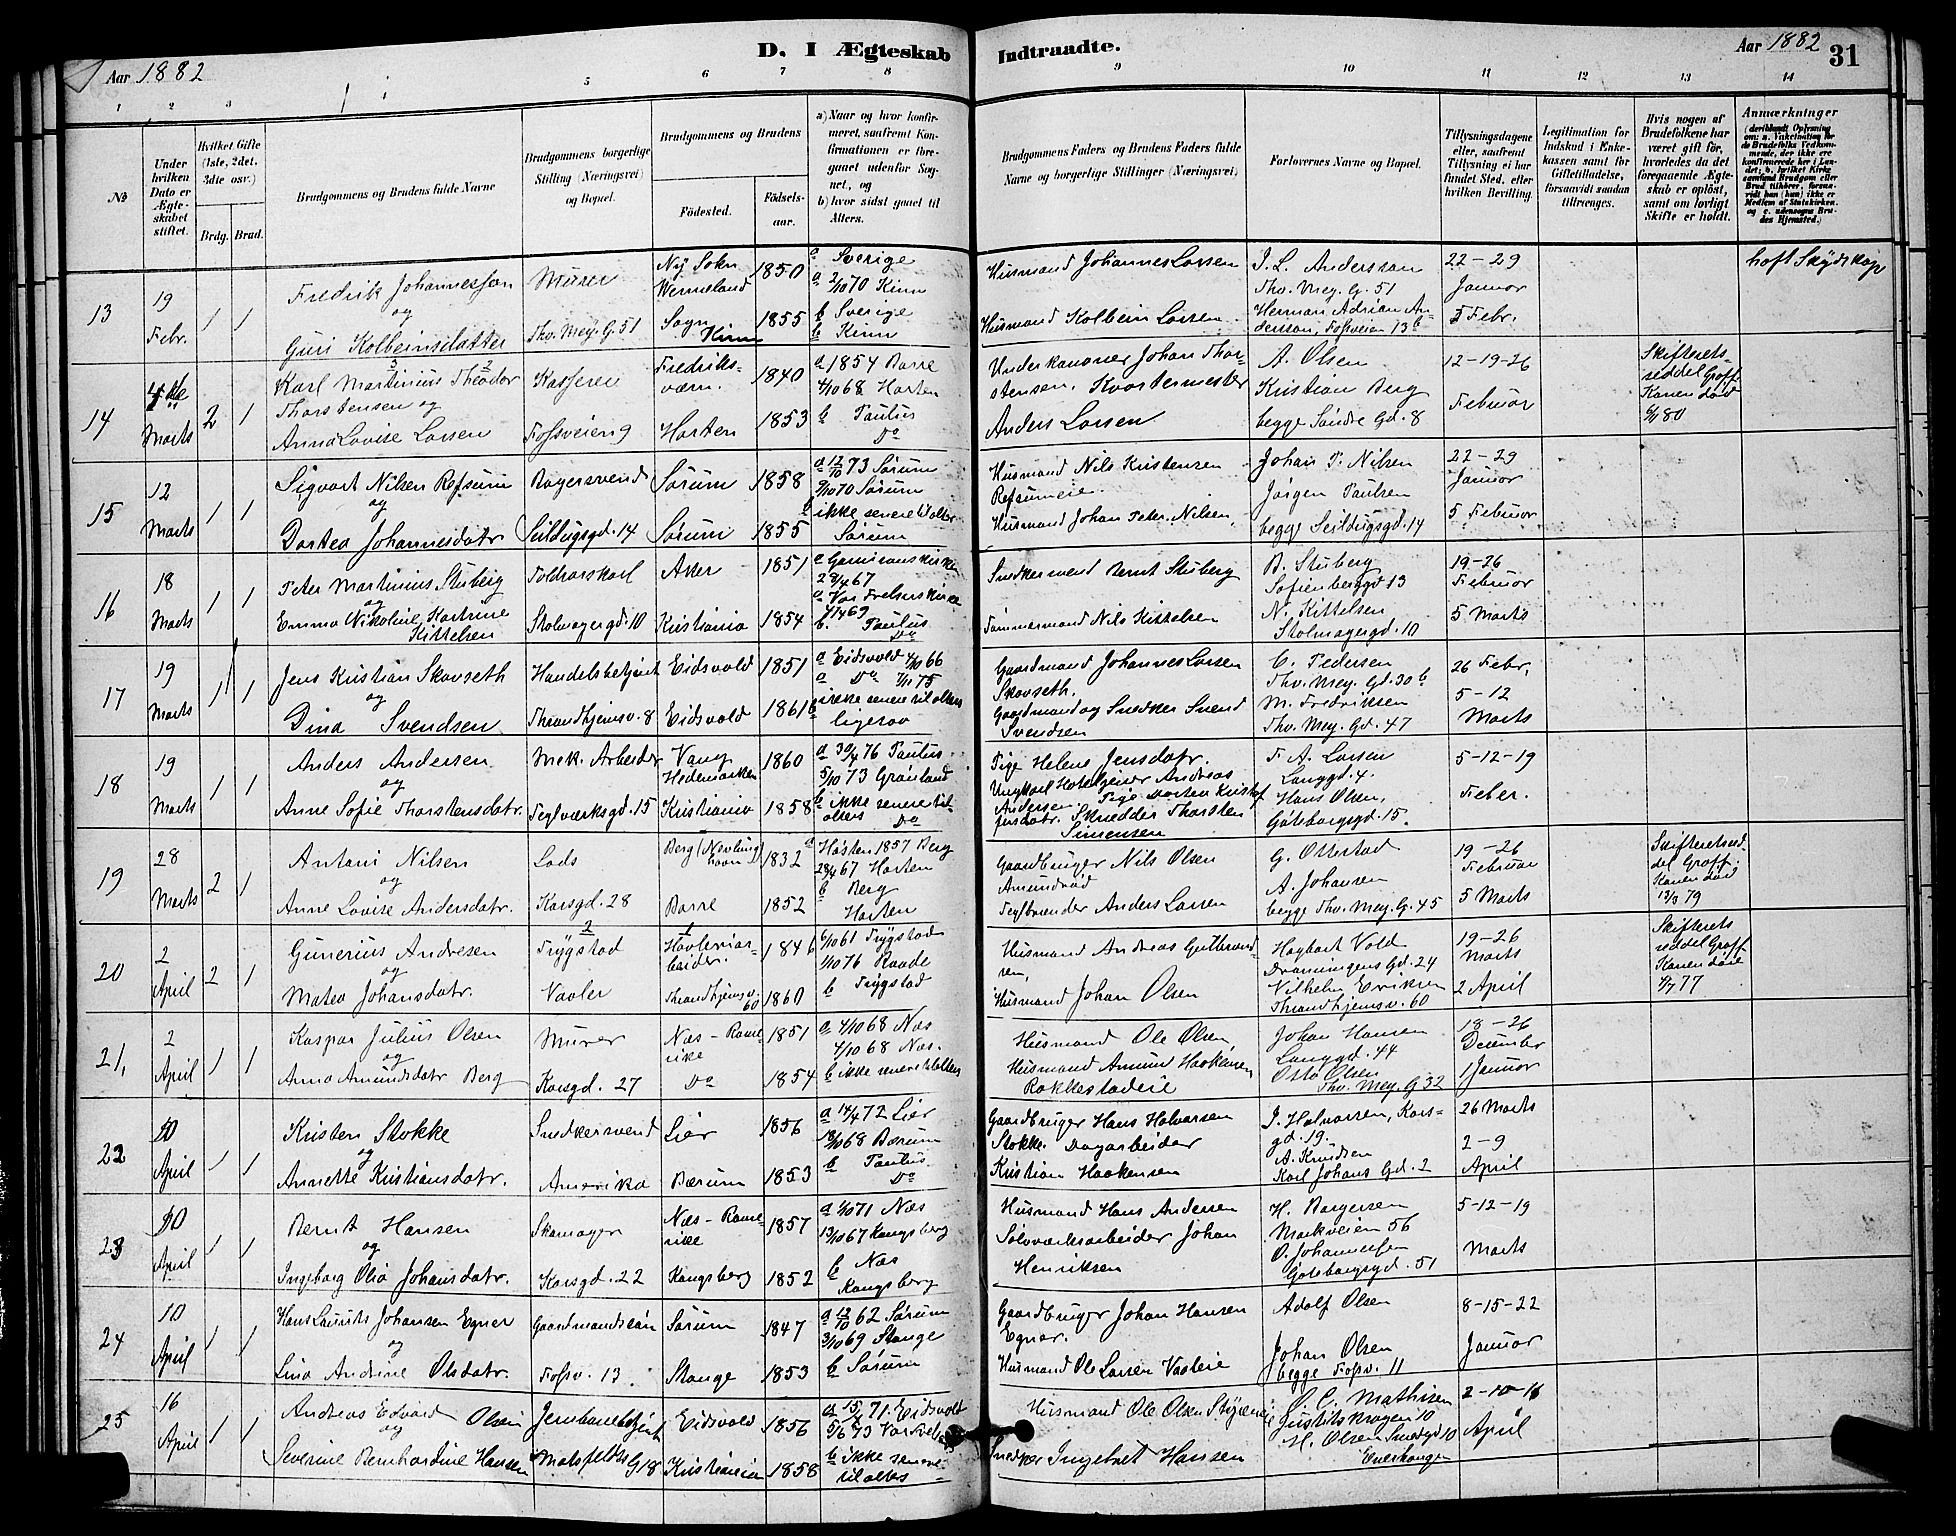 Aar 1882
D. I Ægteskab Indtraadte.
Aar 1882 31
1 2 3 5 6 7 8 9 10 11 12 13 14
No
Under hvilken Dato er Ægteskabet stiftet.
Hvilket Gifte (1ste, 2det, 3die osv.)
Brdg. Brud.
Brudgommens og Brudens fulde Navne
Brudgommens borgerlige Stilling (Næringsvei) og Bopæl.
Brudgommens og Brudens
Födested.
Födselsaar.
a) Naar og hvor konfirmeret, saafremt Konfirmationen er foregaaet udenfor Sognet, og
b) hvor sidst gaaet til Alters.
Brudgommens Faders og Brudens Faders fulde Navne og borgerlige Stillinger (Næringsvei)
Forlovernes Navne og Bopæl.
Tillysningsdagene eller, saafremt Tillysning ei har fundet Sted, efter hvilken Bevilling.
Legitimation for Indskud i Enkekassen samt for Giftetilladelse, forsaavidt saadan tiltrænges.
Hvis nogen af Brudefolkene har været gift før, hvorledes da det foregaaende Ægteskab er oplöst, samt om lovligt Skifte er holdt.
Anmærkninger
13
19 Febr.
1 1
Fredrik Johannesson
og
Guri Kolbeinsdatter
Murer
Thv. Mey. G. 51
Ny Sokn Wermeland
Sogn Kinn
1850
1855
a Sverige
a 2/10 70 Kinn
b Sverige
b Kinn
Husmand Johannes Larsen
Husmand Kolbein Larsen
J. L. Andersson
Thv. Mey. G. 51
Herman Adrian Andersson, Fossveien 13 b
22-29
Januar
5 Febr.
haft Skydskop
14
Marts
2 1
Karl Martinius Theodor
Thorstensen og
Anna Lovise Larsen
Kasserer
Fossveien 9
Fredriksværn.
Horten
1840
1853
a 1854 Borre
4/10 68 Horten
b Paulus
Do
Underkanoner Johan Thorstensen. Kvartermester
Anders Larsen
A. Olsen
Kristian Berg
begge Søndre Gd. 8
12-19-26
Februar
Skifteretsseddel Groff.
Konen død
80
15
12 Marts
1 1
Sigvart Nilsen Refsum
og
Dortea Johannesdatr
Bagersvend
Seildugsgd. 14
Sørum
Sørum
1858
1855
a 12/10 73 Sørum
9/10 70 Sørum
b ikke senere til alters
Sørum
Husmand Nils Kristensen
Refsumeie.
Husmand Johan Peter Nilsen,
Johan P. Nilsen
Jørgen Paulsen
begge Seildugsgd. 14
22-29
Januar
5 Februar
16
18 Marts
1 1
Peter Martinius Stuberg
og
Emma Nikoline Katrine
Kittelsen
Toldkarskarl
Stolmagergd. 10
Aker
Kristiania
1851
1854
28/4 67
a Vor Frelserskirke
4/4 69
b. Paulus
Do
Snedkersvend Bernt Stuberg
Tømmermand Nils Kittelsen
B. Stuberg
Sofienberggd 13
N. Kittelsen
Stolmagergd. 10
19-26
Februar
5 Marts
17
19 Marts
1 1
Jens Kristian Skovseth
og
Dina Svendsen
Handelsbetjent
Thrandhjemsv. 8
Eidsvold
Eidsvold
1851
1861
a Eidsvold 4/10 66
a Do 7/11 75
b ikke senere til alters
ligesaa
Gaardmand Johannes Larsen
Skovseth.
Gaardmand og Snedker Svend
Svendsen
C. Pedersen
Thv. Mey. Gd. 30 b
M. Fredriksen
Thv. Mey. Gd. 47
26 Febr.
5-12
Marts
18
19 Marts
1 1
Anders Andersen
og
Anne Sofie Thorstensdatr.
Mek. Arbeider
Teglverksgd. 15
Vang Hedemarken
Kristiania
1860
1858
a 30/4 76 Paulus
5/10 73 Grønland
b ikke senere til alters Do
Pige Helene Jensdatr.
Ungkarl Hotelgeier Andreas
Andersen Pige Dorten Kristofersdatr. Skredder Thorsten
Simensen
F. A. Larsen
Langgd. 4.
Hans Olsen,
Göteborgsgd. 15.
5-12-19
Feber.
19
28 Marts
2 1
Antoni Nilsen
og
Anne Lovise Andersdatr.
Lods
Korsgd. 28
Berg (Nevlunghavn)
Borre
1832
1852
a Høsten 1857 Berg
28/4 67 Horten
b Berg
Horten
Gaardbruger Nils Olsen
Amundrød
Teglbrænder Anders Larsen
G. Ottestad
A. Johansen
begge Thv. Mey. G. 45
19-26
Februar
5 Marts
Skifteretsseddel Groff.
Konen død
13/3 79
20
2 April
2 1
Gunerius Andresen
og
Matea Johansdatr.
2
Trygstad
Vaaler
1
Høvleriarbeider.
Thrandhjemsv. 60
1846
1860
6/10 61 Trygstad
1/10 76 Raade
b Trygstad
Husmand Andreas Gulbrandsen,
Husmand Johan Olsen
Hagbart Vold
Dronningens Gd. 24
Vilhelm Eriksen
Thrandhjemsv. 60
19-26
Marts
2 April
Skifterets
seddel Groff.
Konen død
4/7 77
21,
2 April
1 1
Kaspar Julius Olsen
og
Anna Amundsdatr Berg
Murer
Korsgd. 27
Næs - Romerike
Do
1851
1854
a 4/10 68 Næs
4/10 68 Næs.
b ikke senere til alters
Husmand Ole Olsen
Husmand Amund Haakensen
Rakkestadeie
Johan Hansen
Langgd. 44
Otto Olsen
Thv. Mey. G 32
18-26
December
1 Januar
22
10 April
1 1
Kristen Stokke
og
Annette Kristiansdatr.
Snedkersvend
Amerika
Lier
Bærum
1856
1853
a 14/4 72 Lier
18/10 68 Bærum
b Paulus.
Do
Gaardbruger Hans Halvorsen
Stokke. Dagarbeider
Kristian Haakensen
J. Halvorsen, Korsgd. 19.
A. Knudsen
Karl Johans Gd. 2
26 Marts
2-9
April
23
10 April
1 1
Bernt Hansen
og
Ingeborg Olia Johansdatr.
Skomager
Korsgd. 22
Næs - Romerike
Kongsberg
1857
1852
a 1/10 71 Næs
13/10 67 Kongsberg
b Næs
Kongsberg
Husmand Hans Andersen
Sølvverksarbeider Johan
Henriksen
H. Borgersen
Markveien 56
O. Johannesen
Göteborgsgd. 51
5-12-19
Marts
24
10 April
1 1
Hans Laurits Johansen Egner
og
Lina Andrine Olsdatr.
Gaardmandssøn
Fossv. 13.
Sørum
Stange
1847
1853
a 12/10 62 Sørum
3/10 69 Stange
b Sørum
Gaardbruger Johan Hansen
Egner.
Husmand Ole Larsen Vasteie
Adolf Olsen
Johan Olsen
begge Fossv. 11
8-15-22
Januar
25
16 April
1 1
Andreas Edvard Olsen
og
Severine Bernhardine Hansen
Jernbanebetjent
Eidsvold
Kristiania
1856
1858
a 15/ 71 Eidsvold
b ikke senere
til alters
Husmand Ole Olsen
Snedker Ingebret Hansen
C. Mathisen
H. Olsen Smedgd 10
2-10-16
April